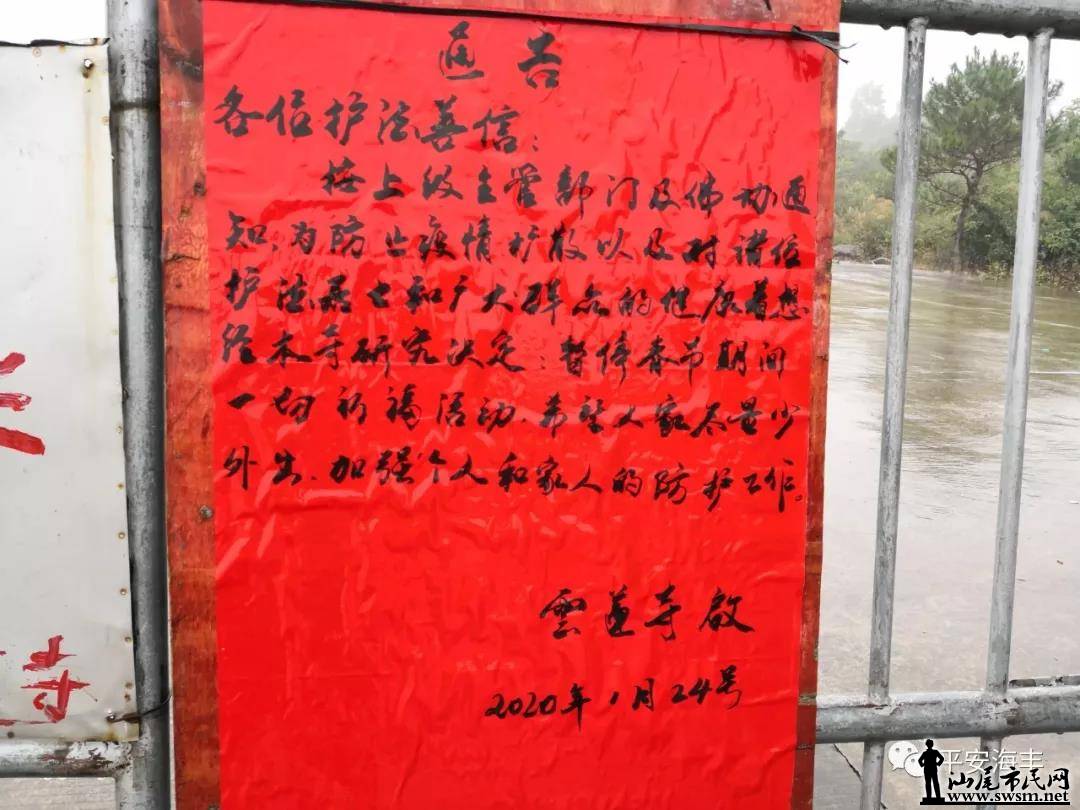 通告
各位护法善信:
接上级主管部门及佛协通
知,为防止疫情扩散以及对诸位
护法居士和广大群众的健康着想
经本寺研究决定:暂停春节期间
一切祈福活动.希望大家尽量少
外出、加强个人和家人的防护工作。
雲莲寺啟
2020年1月24号
寺
平安海丰
汕尾市民网
www.swsm.net